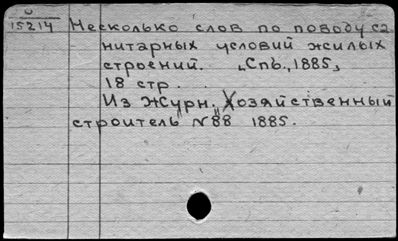 15214
Несколько слов по поводу са
нитарных условий жилых
строений. „Спб., 1885„
18 стр.
Из Журн. „Хозяйственный
строитель" N88 1885.